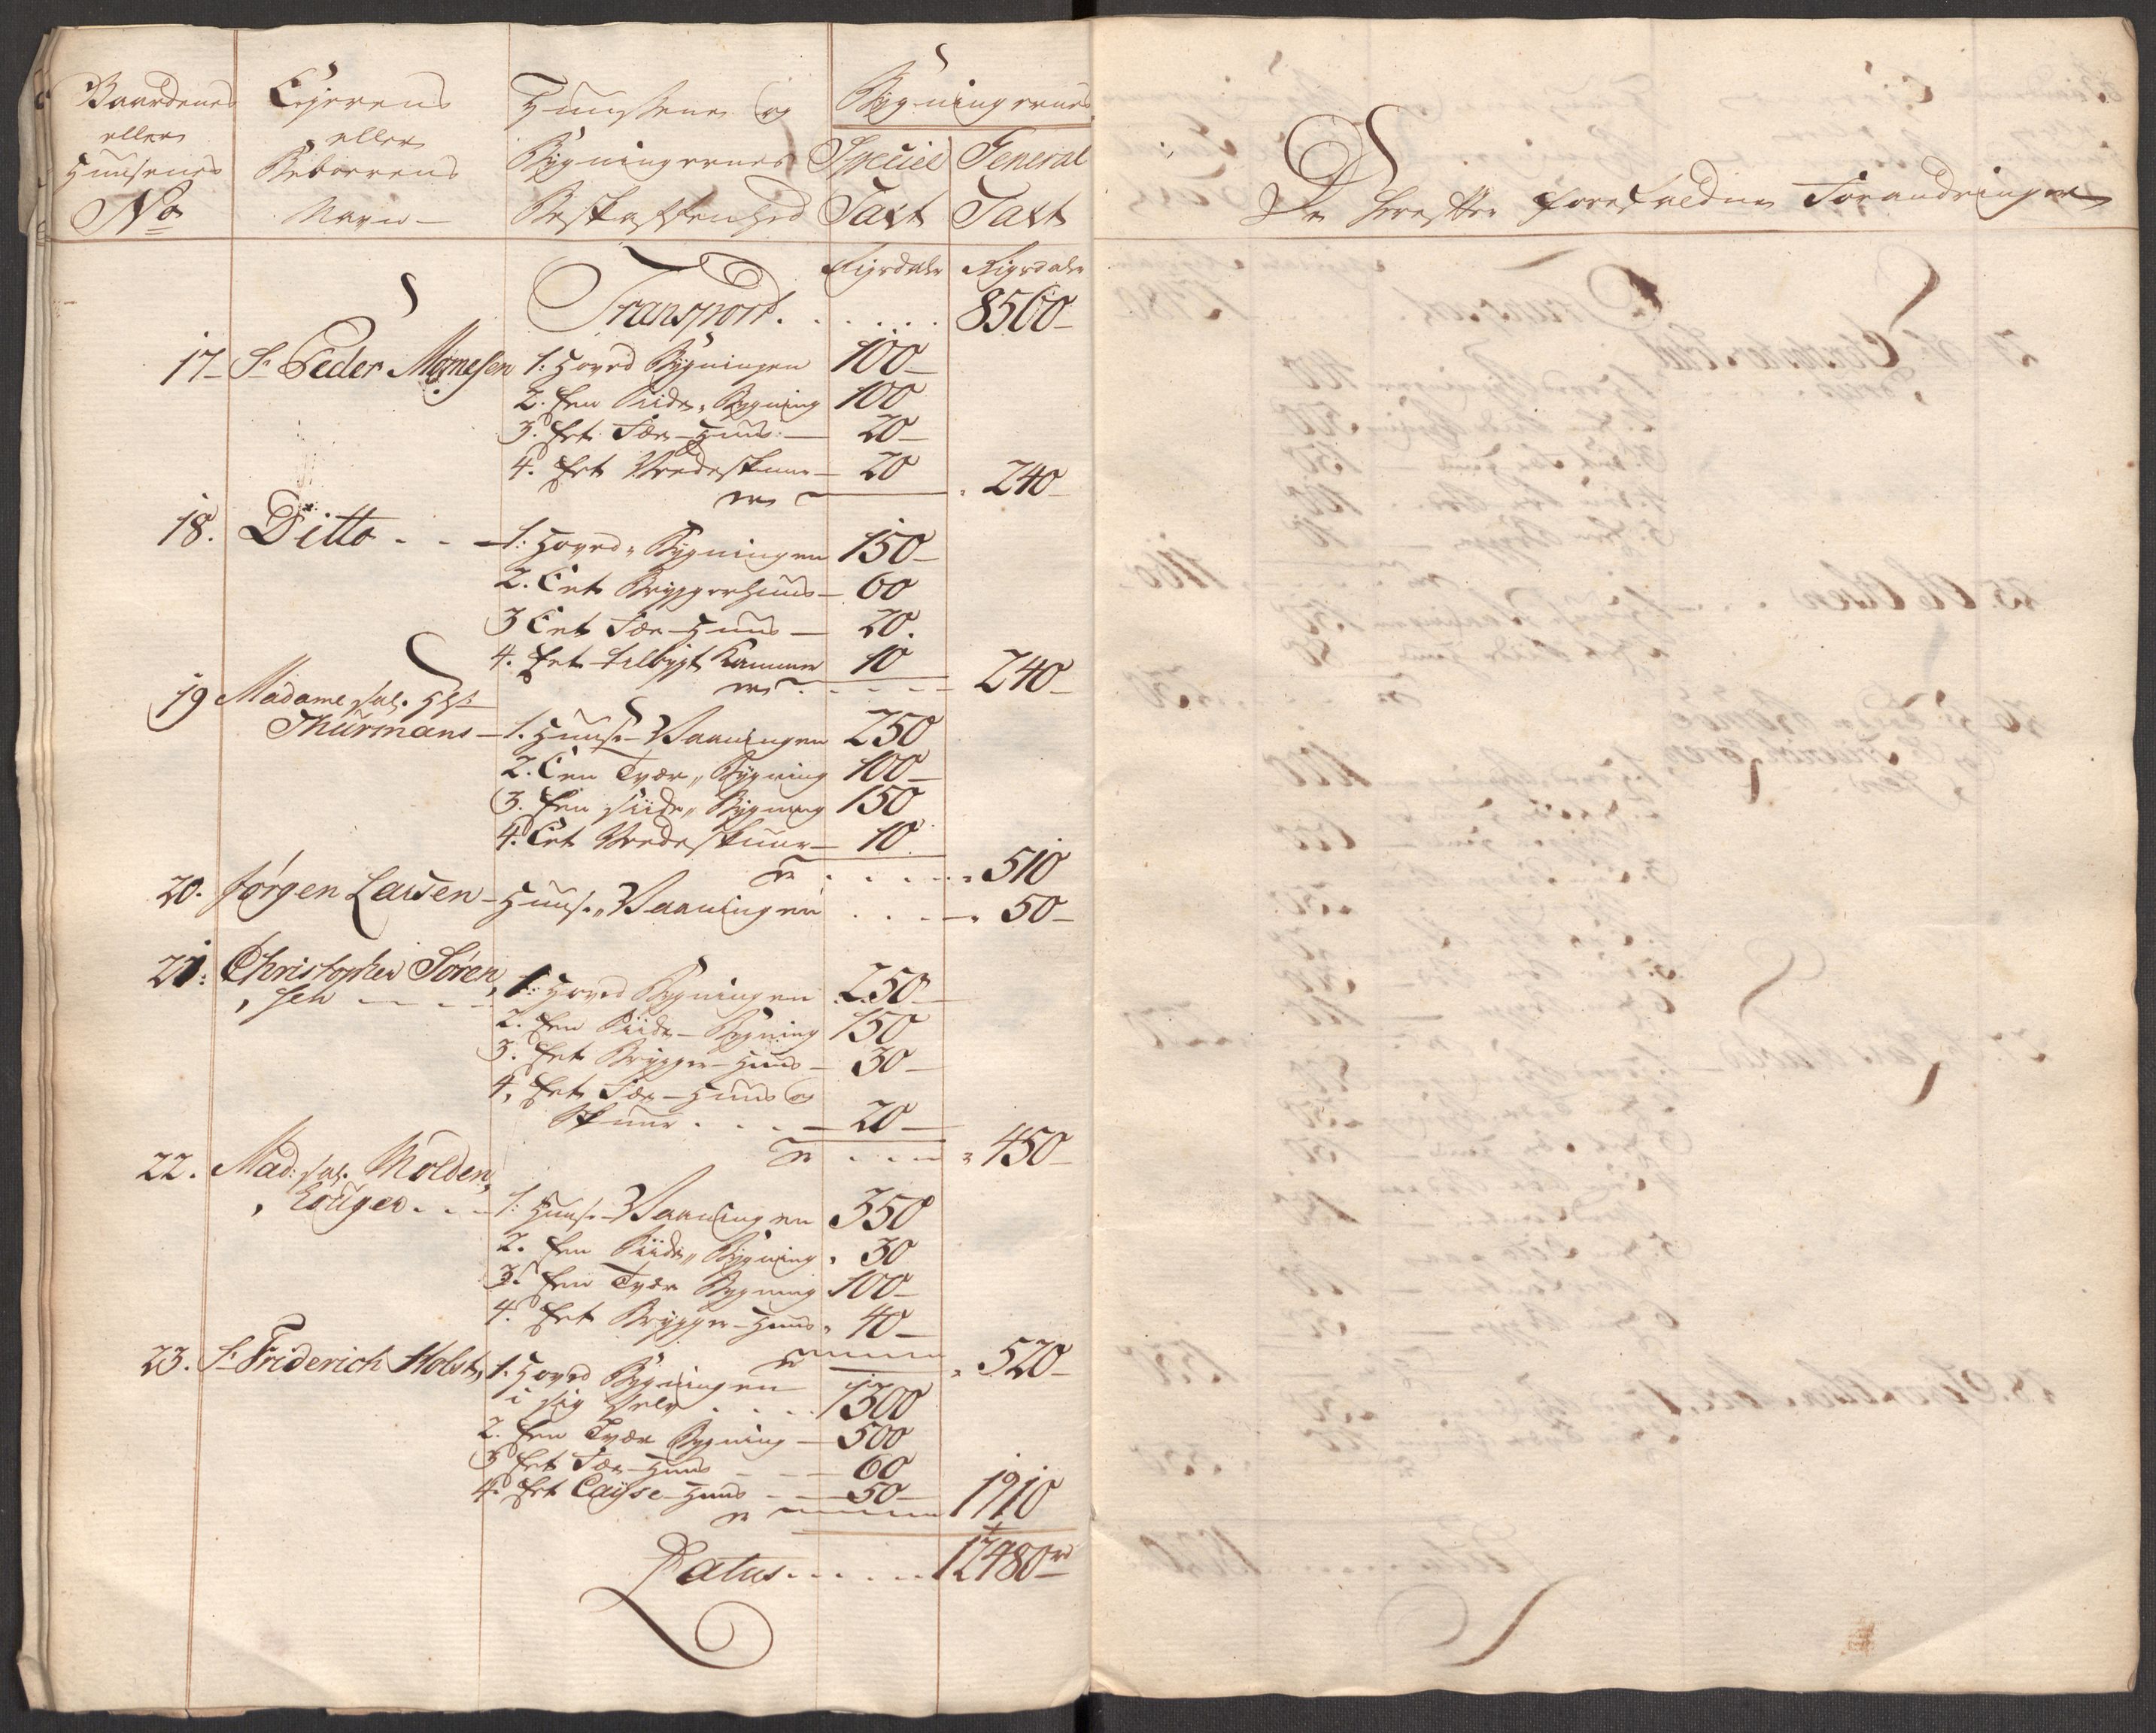 Gaardenes
eller
Huusenes
No
Ejerens
eller
Beboerens
Navn
Huusene og
Bygningernes
Beskaffenhed
Bygningernes
Speciel General
Taxt Taxt
Rigsdaler Rigsdaler
Transport . . . . . . 8560
17 Sr Peder Mørnesen 1. Hoved Bygningen 100
2. Een Siide Bygning 100
3. Eet Fæe-Huus 20
4. Eet Vedeskuur 20
er 240
18. Ditto 1. Hoved Bygningen 150
2. Eet Bryggerhuus 60
3 Eet Fæe-Huus 20.
4. Eet tilbygt Kammer 10
er 240
19 Madame sal. Hr
Thurmans 1. Huuse Vaaningen 250
2. Een Tvær Bygning 100
3. Een Siide Bygning 150
4. Eet Vedeskuur 10
er 510
20. Jørgen Larsen Huuse Vaaningen 50
21. Christopher Søren
sen 1. Hoved Bygningen 250
2. Een Siide Bygning 150
3. Eet Brygger-Huus 30
4. Eet Fæe-Huus og
Skuur 20
er 450
22. Mad. sal. Molden
houger 1. Huuse Vaaningen 350
2. Een Siide Bygning 30
3. Een Tvær Bygning 100
4. Eet Brygger-Huus 40
er 520
23. Sr Friderich Holst 1. Hoved Bygningen
i sig selv 1300
2. Een Tvær Bygning 500
3 Eet Fæe-Huus 60
4. Eet Caisse-Huus 50
er 1910
Latus . . . . . 12480 rd
De herefter forefaldne Forandringer